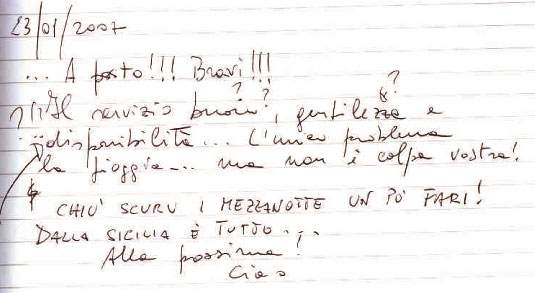 23/01/2007
... A posto!!! Bravi!!!
Il servizio buono??, gentilezza? e
disponibilità... L'unico problema
la pioggia... ma non è colpa vostra!
CHIÙ SCURU I MEZZANOTTE UN PÒ FARI!
DALLA SICILIA È TUTTO...
Alla prossima!
Ciao